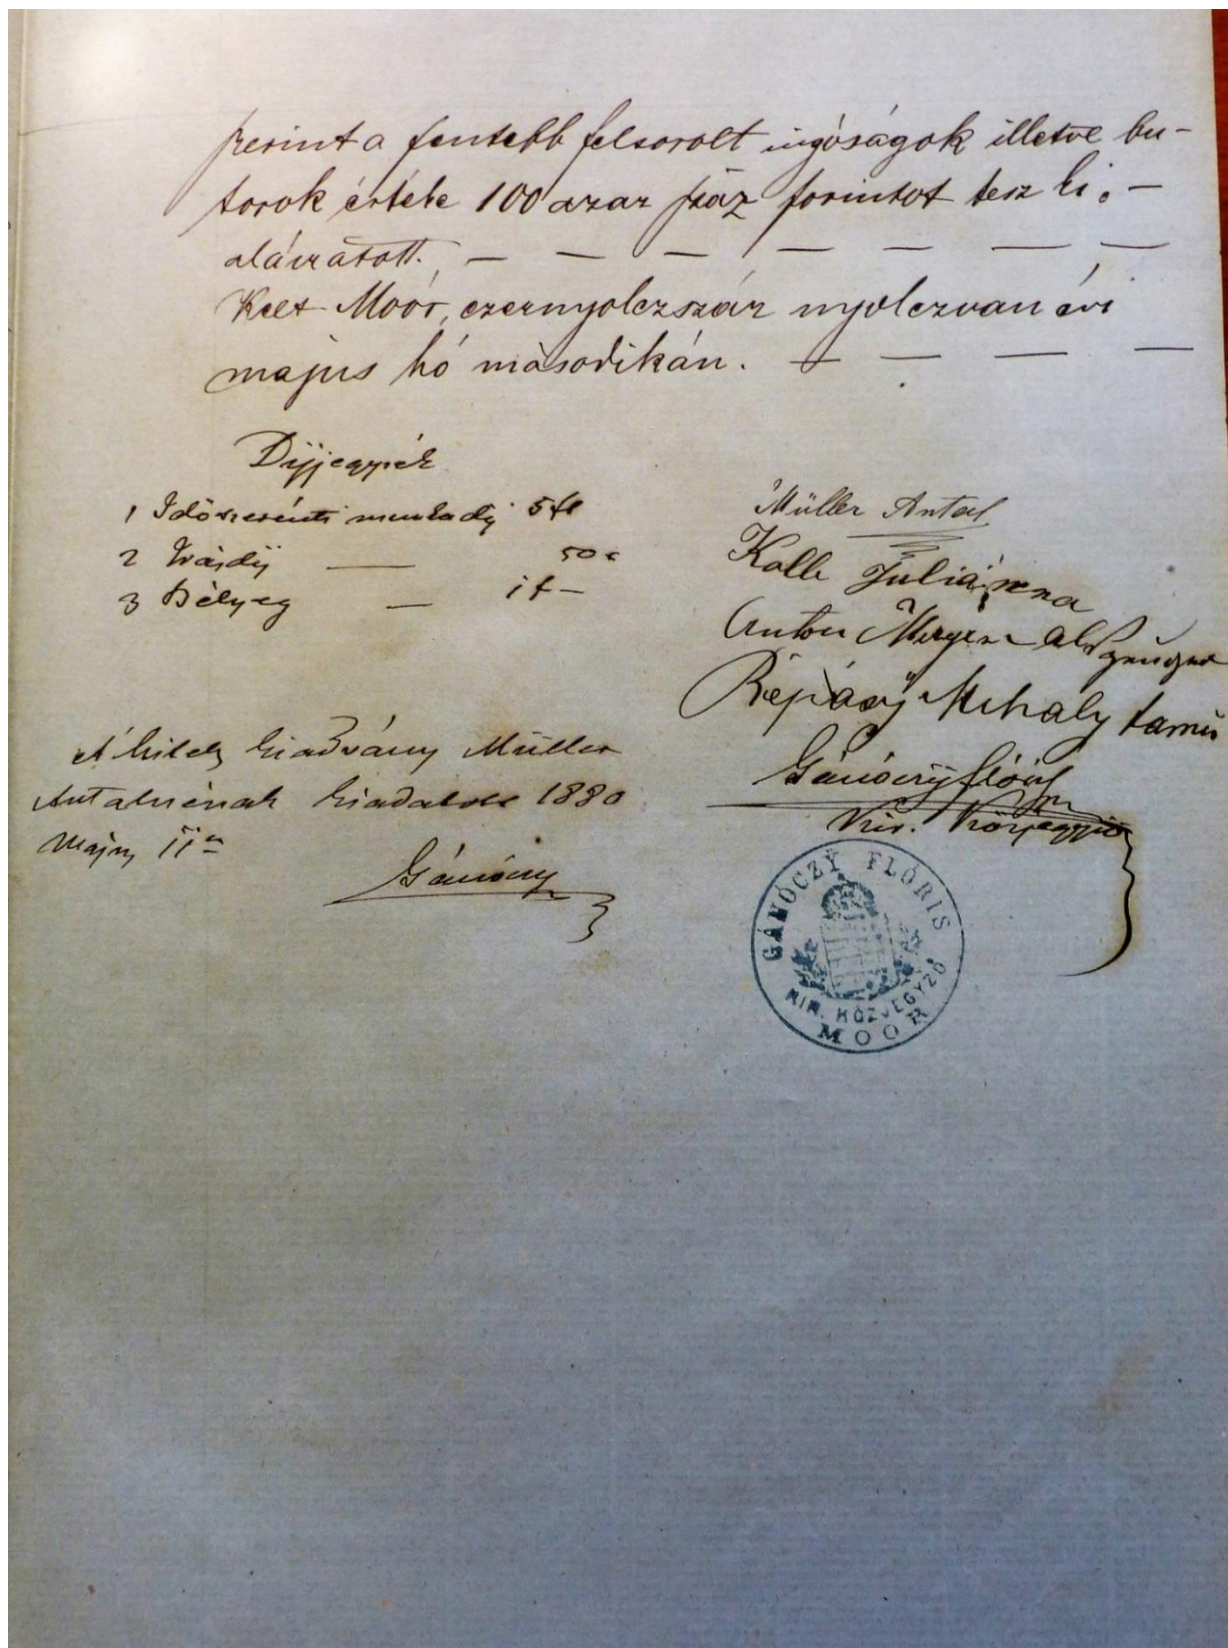 szerint a fentebb felsorolt ingóságok illetve bu-
torok értéke 100 azaz száz forintot tesz ki. –
aláiratott. — — — — — — —
Kelt Moór, ezernyolczszáz nyolczvan évi
május hó másodikán. — — — —
Díjjegyzék
1 Időszerénti munkadij 5 fl
2 Irásdíj — 50 c
3 Bélyeg — 1 f –
Müller Antal
Kolb Juliánna
Anton als Zeuger
Répásÿ Mihaly tanú
Gánóczy Flóris
Kir. Közjegyző
A hiteles kiadvány Müller
Antalnénak kiadatott 1880
Május 11én
Gánóczy
GÁNÓCZY FLÓRIS
KIR. KÖZJEGYZŐ
MOOR